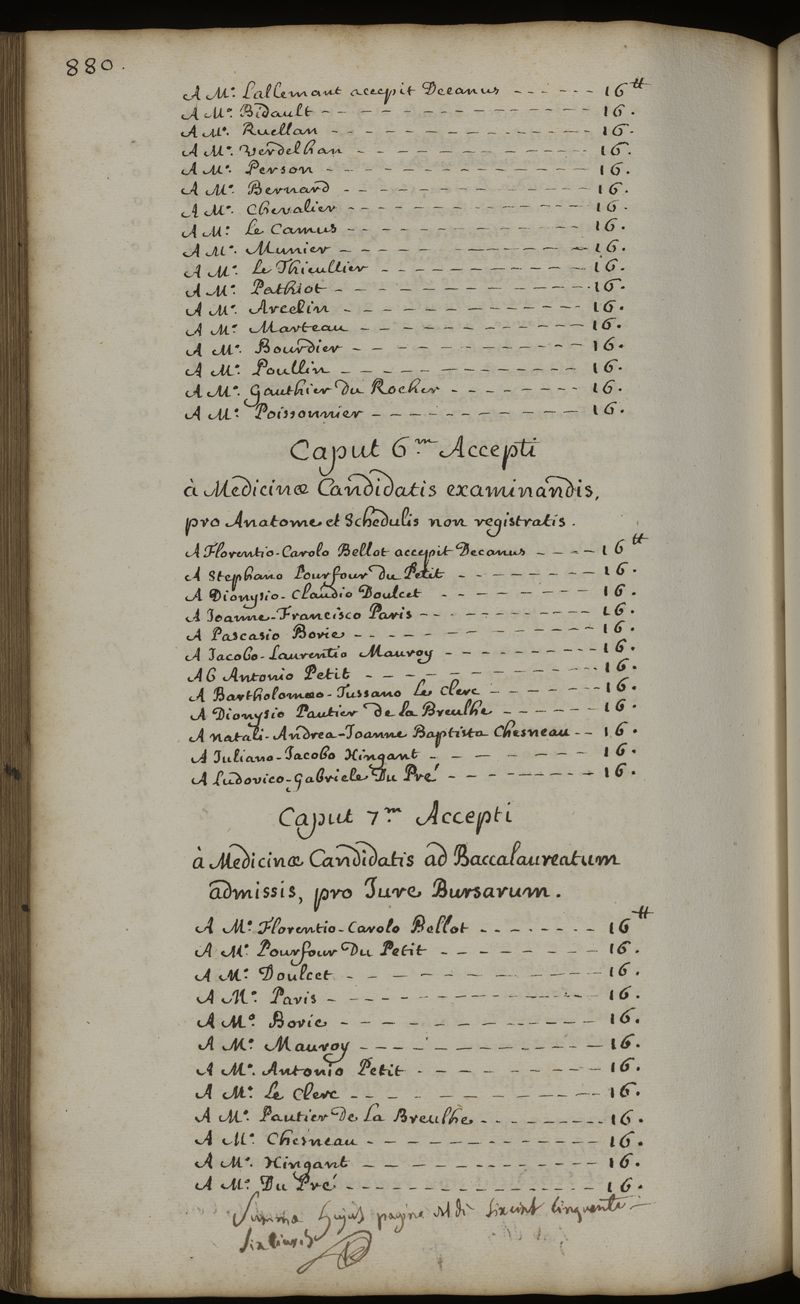 880.
A Mo. Lallemant accepit Decanus - - - - - 16 tt
A Mo. Bidault - - - - - - - - - - - - - 16.
A Mo. Ruellan - - - - - - - - - - - - - 16.
A Mo. Werdelhan - - - - - - - - - - - - 16.
A Mo. Person - - - - - - - - - - - - - 16.
A Mo. Bernard - - - - - - - - - - - - 16.
A Mo. Chevalier - - - - - - - - - - - - 16.
A Mo. Le Camus - - - - - - - - - - - - 16.
A Mo. Munier - - - - - - - - - - - - 16.
A Mo. Le Thieullier - - - - - - - - - - 16.
A Mo. Pathiot - - - - - - - - - - - - 16.
A Mo. Arcelin - - - - - - - - - - - - 16.
A Mo. Marteau - - - - - - - - - - - - 16.
A Mo. Bourdier - - - - - - - - - - - 16.
A Mo. Poullin - - - - - - - - - - - - 16.
A Mo. Gauthier du Rocher - - - - - - - 16.
A Mo. Poissonnier - - - - - - - - - - 16.
Caput 6.m Accepti
à Medicinæ Candidatis examinandis,
pro Anatome et Schedulis non registratis.
A Florentio-Carolo Bellot accepit Decanus - - - - 16 tt
A Stephano Pourfour Du Petit - - - - - - - 16.
A Dionysio-Claudio Doulcet - - - - - - - - 16.
A Joanne-Francisco Paris - - - - - - - - - 16.
A Pascasio Borie - - - - - - - - - - - - 16.
A Jacobo-Laurentio Mauroy - - - - - - - - 16.
Ab Antonio Petit - - - - - - - - - - - - 16.
A Bartholomæo-Tussano Le Clerc - - - - - - 16.
A Dionysio Pautier de la Breulhe - - - - - - 16.
A Natali-Andrea-Joanne Baptista Chesneau - - 16.
A Juliano-Jacobo Hingant - - - - - - - - 16.
A Ludovico-Gabriele Du Pré - - - - - - - - 16.
Caput 7.m Accepti
à Medicinæ Candidatis ad Baccalaureatum
admissis, pro Jure Bursarum.
A Mo. Florentio-Carolo Bellot - - - - - - - 16 tt
A Mo. Pourfour Du Petit - - - - - - - - 16.
A Mo. Doulcet - - - - - - - - - - - - 16.
A Mo. Paris - - - - - - - - - - - - - 16.
A Mo. Borie - - - - - - - - - - - - 16.
A Mo. Mauroy - - - - - - - - - - - - 16.
A Mo. Antonio Petit - - - - - - - - - - 16.
A Mo. Le Clerc - - - - - - - - - - - - 16.
A Mo. Pautier De La Breulhe - - - - - - - 16.
A Mo. Chesneau - - - - - - - - - - - - 16.
A Mo. Hingant - - - - - - - - - - - - 16.
A Mo. Du Pré - - - - - - - - - - - - 16.
Summa hujus pagine est de Sixcent Cinquante
Six livres